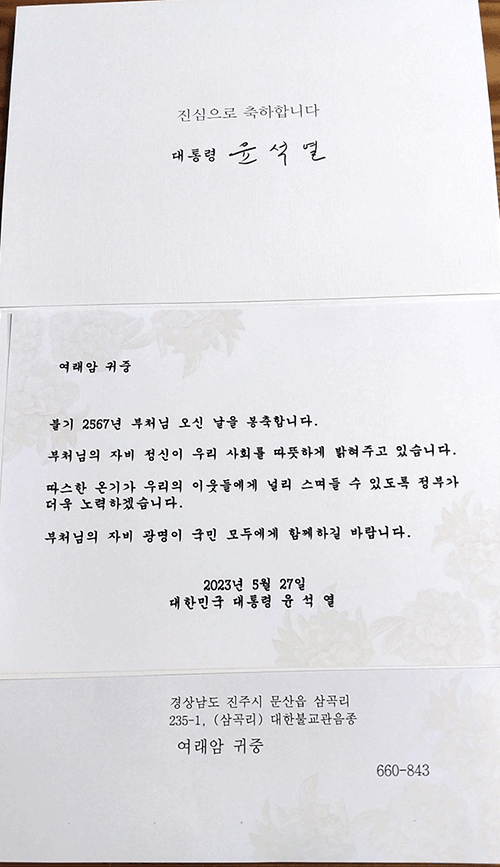 진심으로 축하합니다
대통령 윤석열
여래암 귀중
불기 2567년 부처님 오신 날을 봉축합니다.
부처님의 자비 정신이 우리 사회를 따뜻하게 밝혀주고 있습니다.
따스한 온기가 우리의 이웃들에게 널리 스며들 수 있도록 정부가
더욱 노력하겠습니다.
부처님의 자비 광명이 국민 모두에게 함께하길 바랍니다.
2023년 5월 27일
대한민국 대통령 윤 석 열
경상남도 진주시 문산읍 삼곡리
235-1, (삼곡리) 대한불교관음종
여래암 귀중
660-843